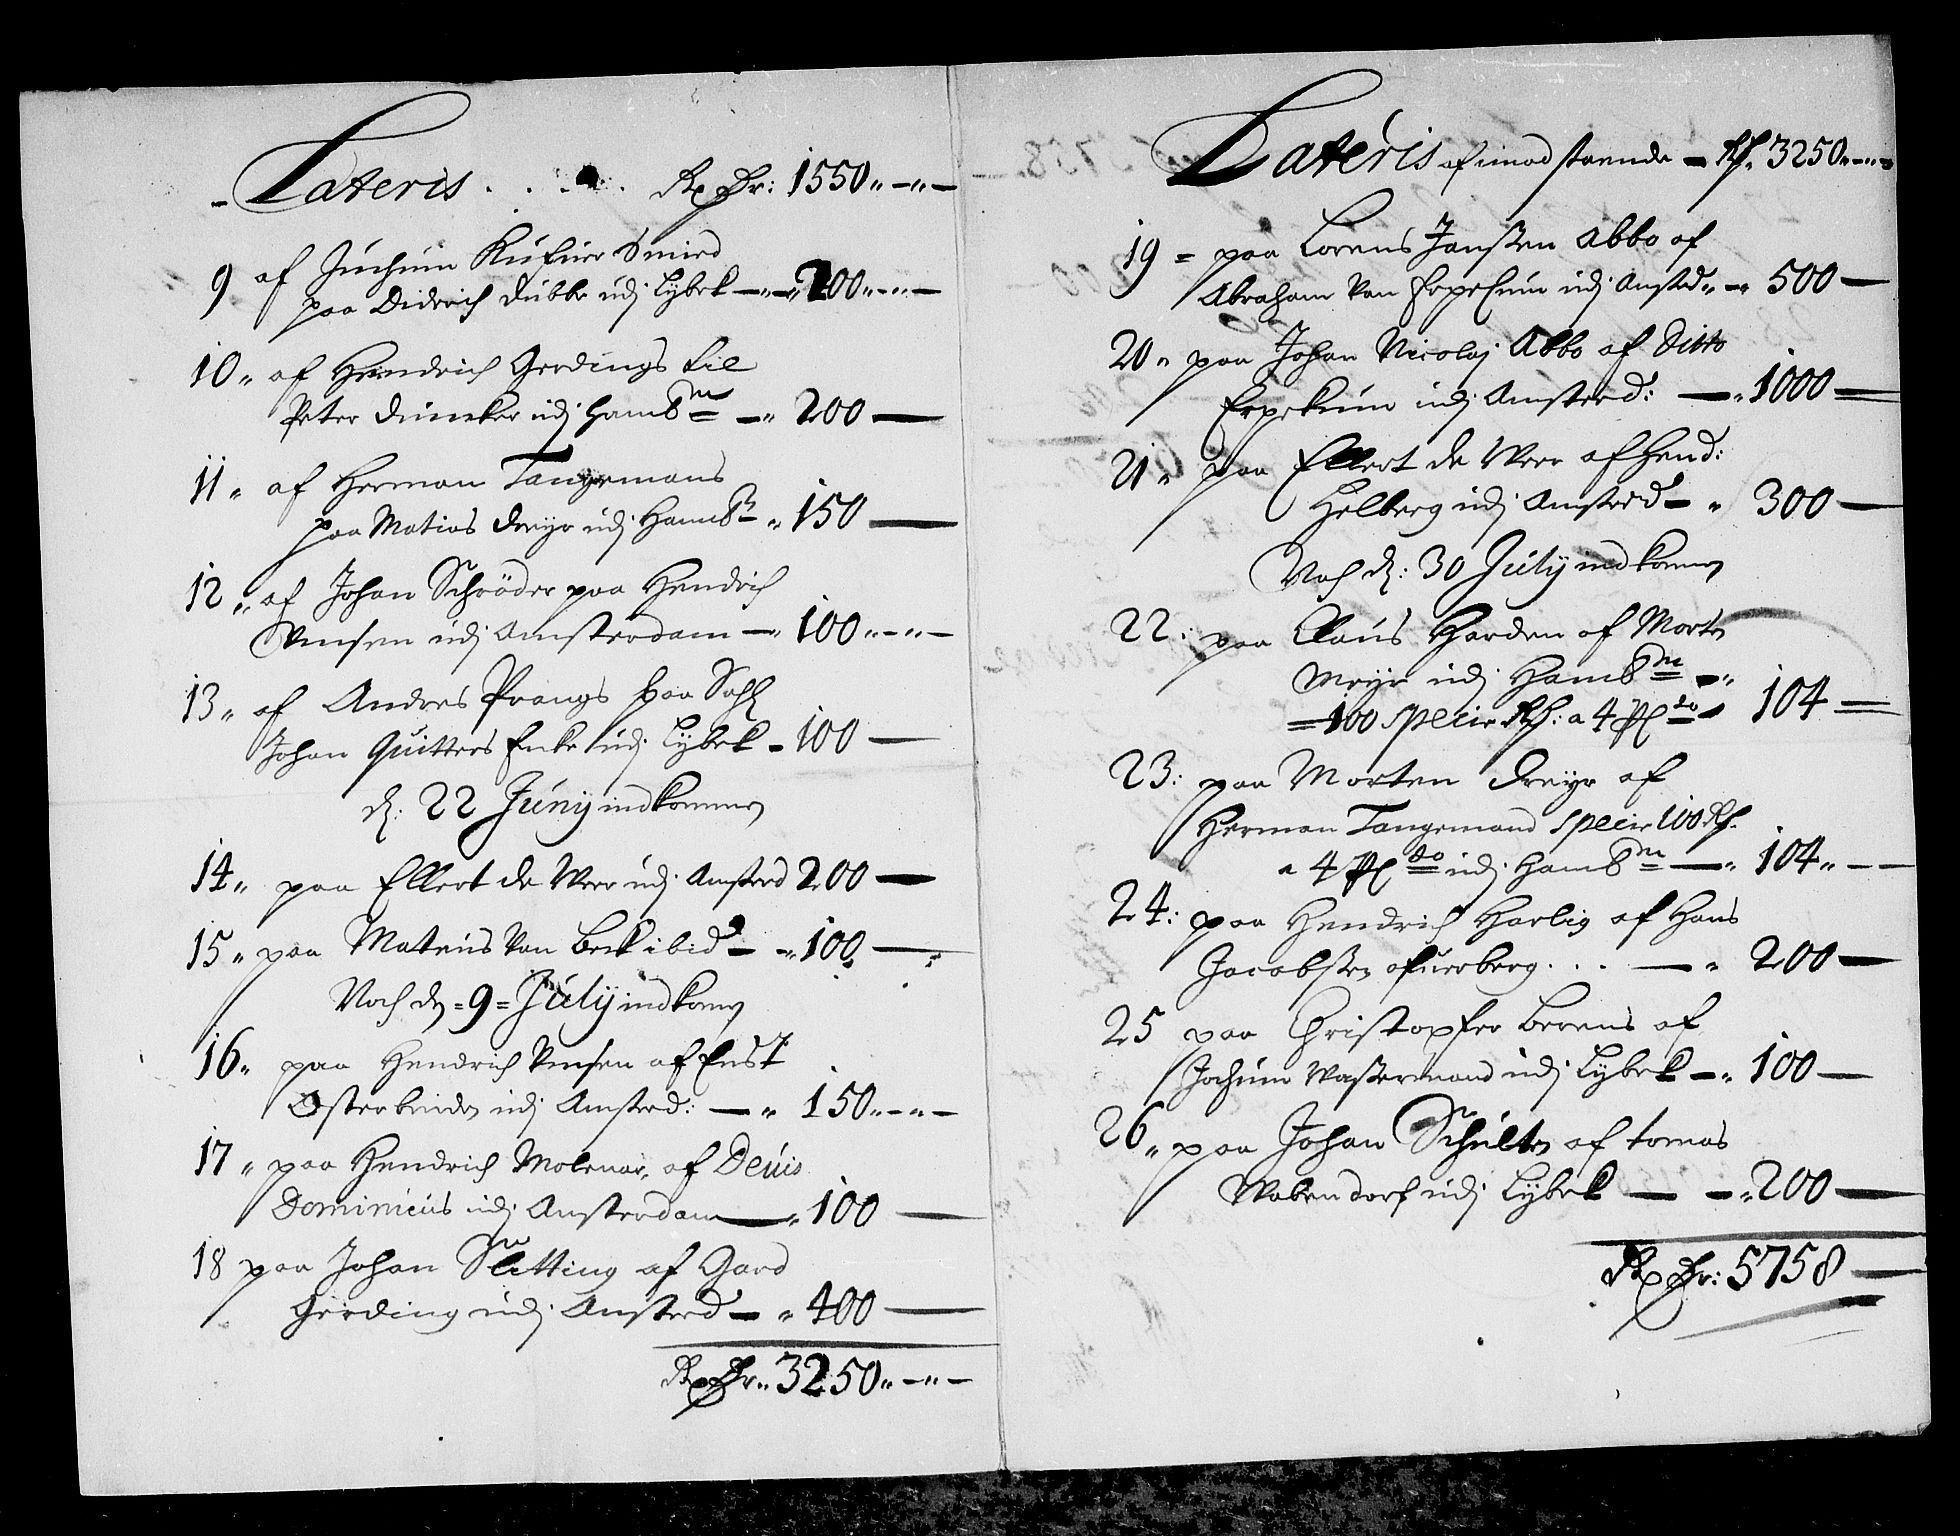 Lateris . . . . Rx dr: 1550 „ – „ –
9 af Juchum Küfuer Smied
paa Diderich Dubbe udj Lybek — „ 200 „ – „ –
10 „ af Hendrich Gerdings til
Peter Duncker udj Hambm — „ 200 —
11 „ af Herman Tangemans
paa Matias Dreyr udj Hambr „ 150 —
12 „ af Johan Schröder paa Hendrich
Vinsen udj Amsterdam — 100 „ – „ –
13 „ af Andres Prangs paa Sahl
Johan Quitters Enke udj Lybek – 100 —
d: 22 Junij indkommen
14 „ paa Ellert de Veer udj Amsterd 200 —
15 „ paa Mateus Van Beck ibid – „ 100 —
Noch dn = 9 = Julij indkomn
16 „ paa Hendrich Vinsen af Eust
Osterbinden udj Amsterd: — „ 150 „ – „ –
17 „ paa Hendrich Molenar, af Deuis
Dominicus udj Amsterdam — „ 100 —
18 paa Johan Slütting af Gard
Gerding udj Amsterd — „ 400 —
Rx dr „ 3250 „ – „ –
Lateris af imod staende – Rd. 3250 „ – „ –
19 = paa Lorens Janßen Abbo af
Abraham Van Erpekum udj Amsterd „ – „ 500 —
20 „ paa Johan Nicolaj Abbo af Ditto
Erpekum udj Amsterd: — „ 1000 =
21 „ paa Ellert de Veer af Hend:
Helberg udj Amsterd – „ 300 —
Noch d: 30 Julij indkomn
22 : paa Claus Harden af Morten
Meyr udj Hambm – „
= 100 specie Rd: a 4 pC do – 104 =
23 : paa Morten Dreyr af
Herman Tangemand specie 100 Rd.
a 4 pC do udj Hambm — „ 104 „ – –
24 : paa Hendrich Harbig af Hans
Jacobsen afuerberg . . . — „ 200 —
25 paa Christopfer Berens af
Jochum Waßermand udj Lybek – „ 100 —
26 „ paa Johan Schulten af tomas
Wabendorf udj Lybek — – „ 200 —
Rx dr: 5758 —